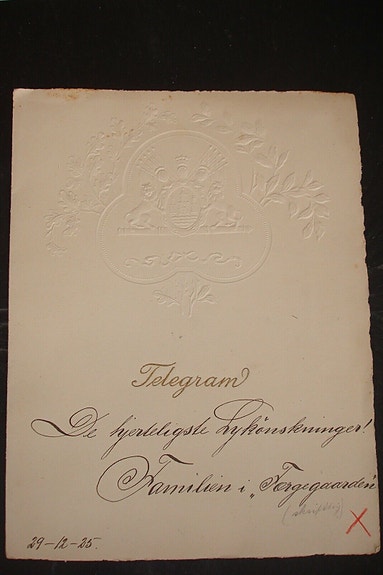 Telegram
De hjerteligste Lykönskninger!
Familien i „Færgegaarden"
29-12-25.